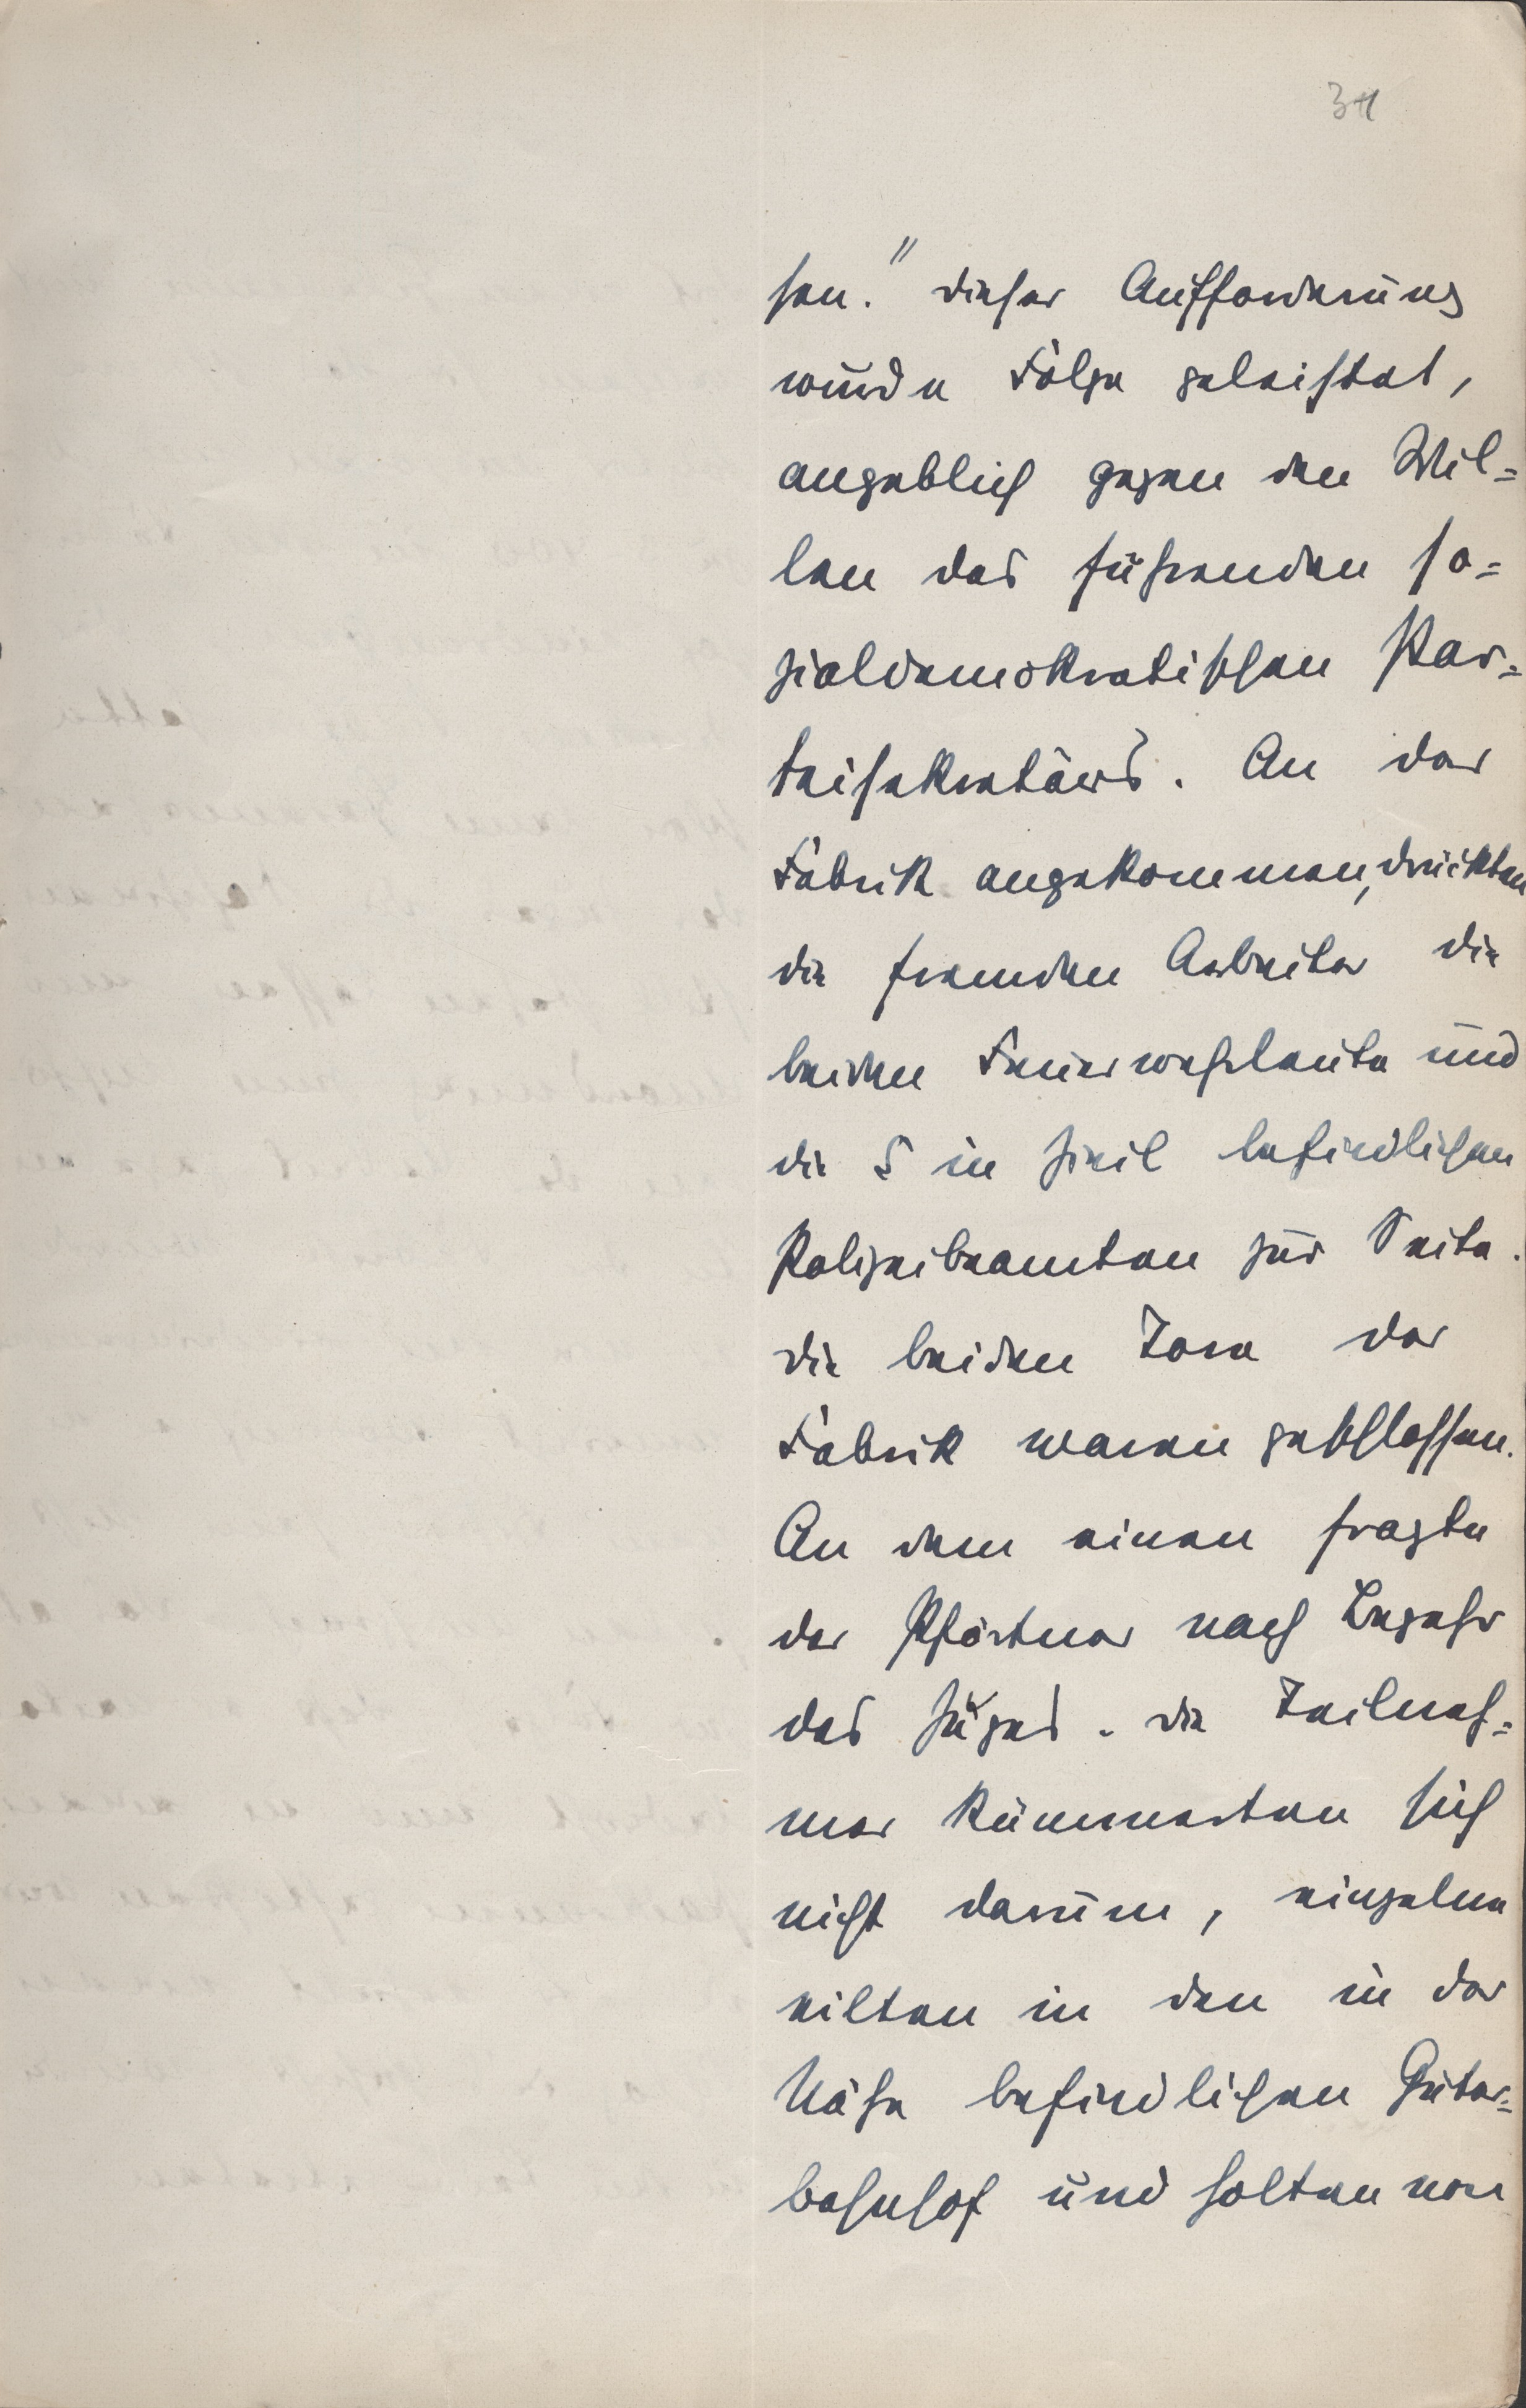 34
sen." Dieser Aufforderung
wurde Folge geleistet,
angeblich gegen den Wil=
len des führenden so=
zialdemokratischen Par=
teisekretärs. An der
Fabrik angekommen, drückten
die fremden Arbeiter die
beiden Feuerwehrleute und
die 5 in Zivil befindlichen
Polizeibeamten zur Seite.
Die beiden Tore der
Fabrik waren geschlossen.
An dem einen fragte
der Pförtner nach Begehr
des Zuges. Die Teilneh=
mer kümmerten sich
nicht darum, einzelne
eilten in den in der
Nähe befindlichen Güter=
bahnhof und holten von